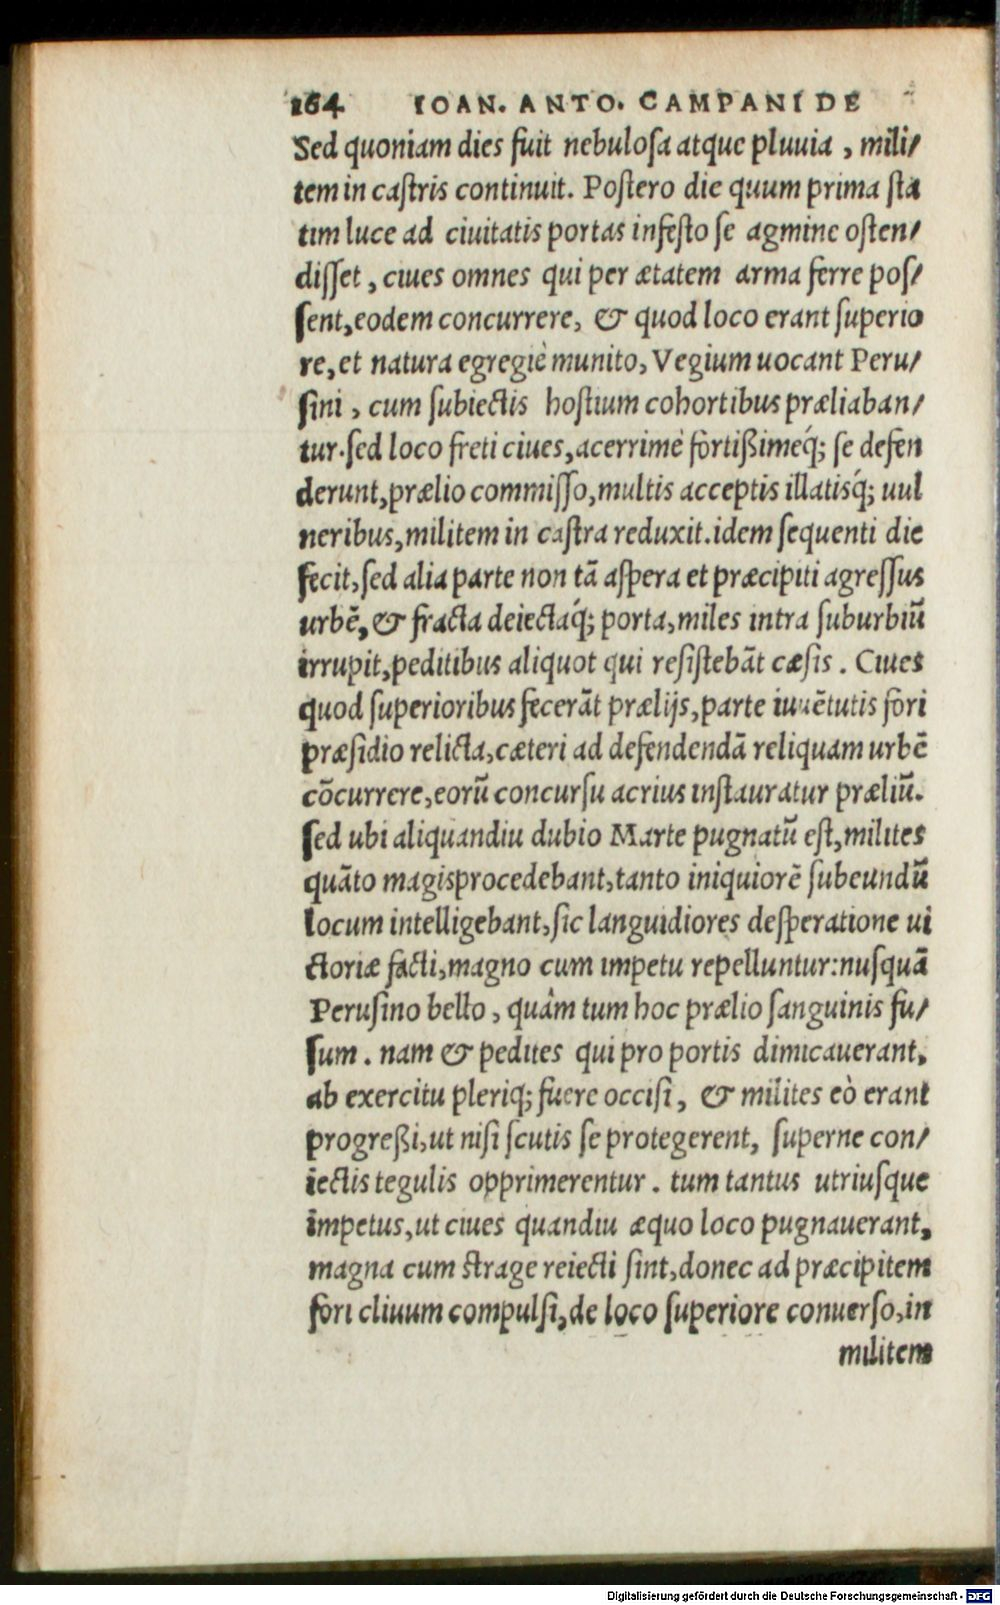 164 IOAN. ANTO. CAMPANI DE
Sed quoniam dies fuit nebulosa atque pluuia, mili/
tem in castris continuit. Postero die quum prima sta
tim luce ad ciuitatis portas infesto se agmine osten/
disset, ciues omnes qui per ætatem arma ferre pos/
sent, eodem concurrere, & quod loco erant superio
re, et natura egregiè munito, Vegium uocant Peru/
sini, cum subiectis hostium cohortibus præliaban/
tur. sed loco freti ciues, acerrimè fortißimeq́; se defen
derunt, prælio commisso, multis acceptis illatisq́; uul
neribus, militem in castra reduxit. idem sequenti die
fecit, sed alia parte non tā aspera et præcipiti agressus
urbē, & fracta deiectaq́; porta, miles intra suburbiū
irrupit, peditibus aliquot qui resistebāt cæsis. Ciues
quod superioribus fecerāt prælijs, parte iuuētutis fori
præsidio relicta, cæteri ad defendendā reliquam urbē
cōcurrere, eorū concursu acrius instauratur præliū.
sed ubi aliquandiu dubio Marte pugnatū est, milites
quāto magis procedebant, tanto iniquiorē subeundū
locum intelligebant, sic languidiores desperatione ui
ctoriæ facti, magno cum impetu repelluntur: nusquā
Perusino bello, quàm tum hoc prælio sanguinis fu/
sum. nam & pedites qui pro portis dimicauerant,
ab exercitu pleriq; fuere occisi, & milites eò erant
progreßi, ut nisi scutis se protegerent, superne con/
iectis tegulis opprimerentur. tum tantus utriusque
impetus, ut ciues quandiu æquo loco pugnauerant,
magna cum strage reiecti sint, donec ad præcipitem
fori cliuum compulsi, de loco superiore conuerso, in
militem
Digitalisierung gefördert durch die Deutsche Forschungsgemeinschaft - DFG